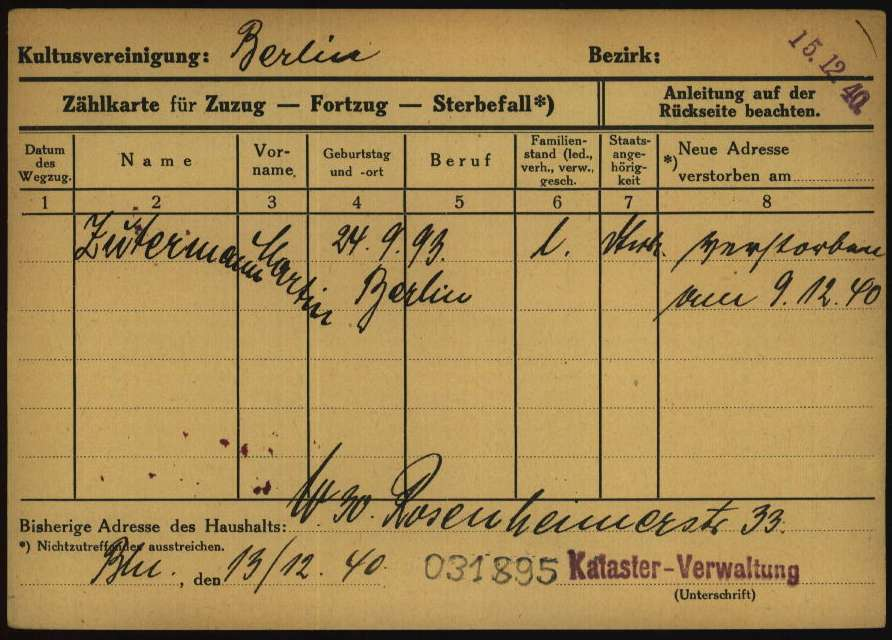 Kultusvereinigung: Berlin Bezirk: 15.12.40
Zählkarte für Zuzug — Fortzug — Sterbefall*) Anleitung auf der Rückseite beachten.
Datum des Wegzug. Name Vor-name. Geburtstag und -ort Beruf Familien-stand (led., verh., verw., gesch. Staats-ange-hörig-keit *) Neue Adresse verstorben am
1 2 3 4 5 6 7 8
Martin 24.9.93. l. verstorben
Berlin am 9.12.40
Bisherige Adresse des Haushalts: W 30. Rosenheimerstr 33.
*) Nichtzutreffendes ausstreichen.
Bln., den 13/12.40 031895 Kataster-Verwaltung
(Unterschrift)